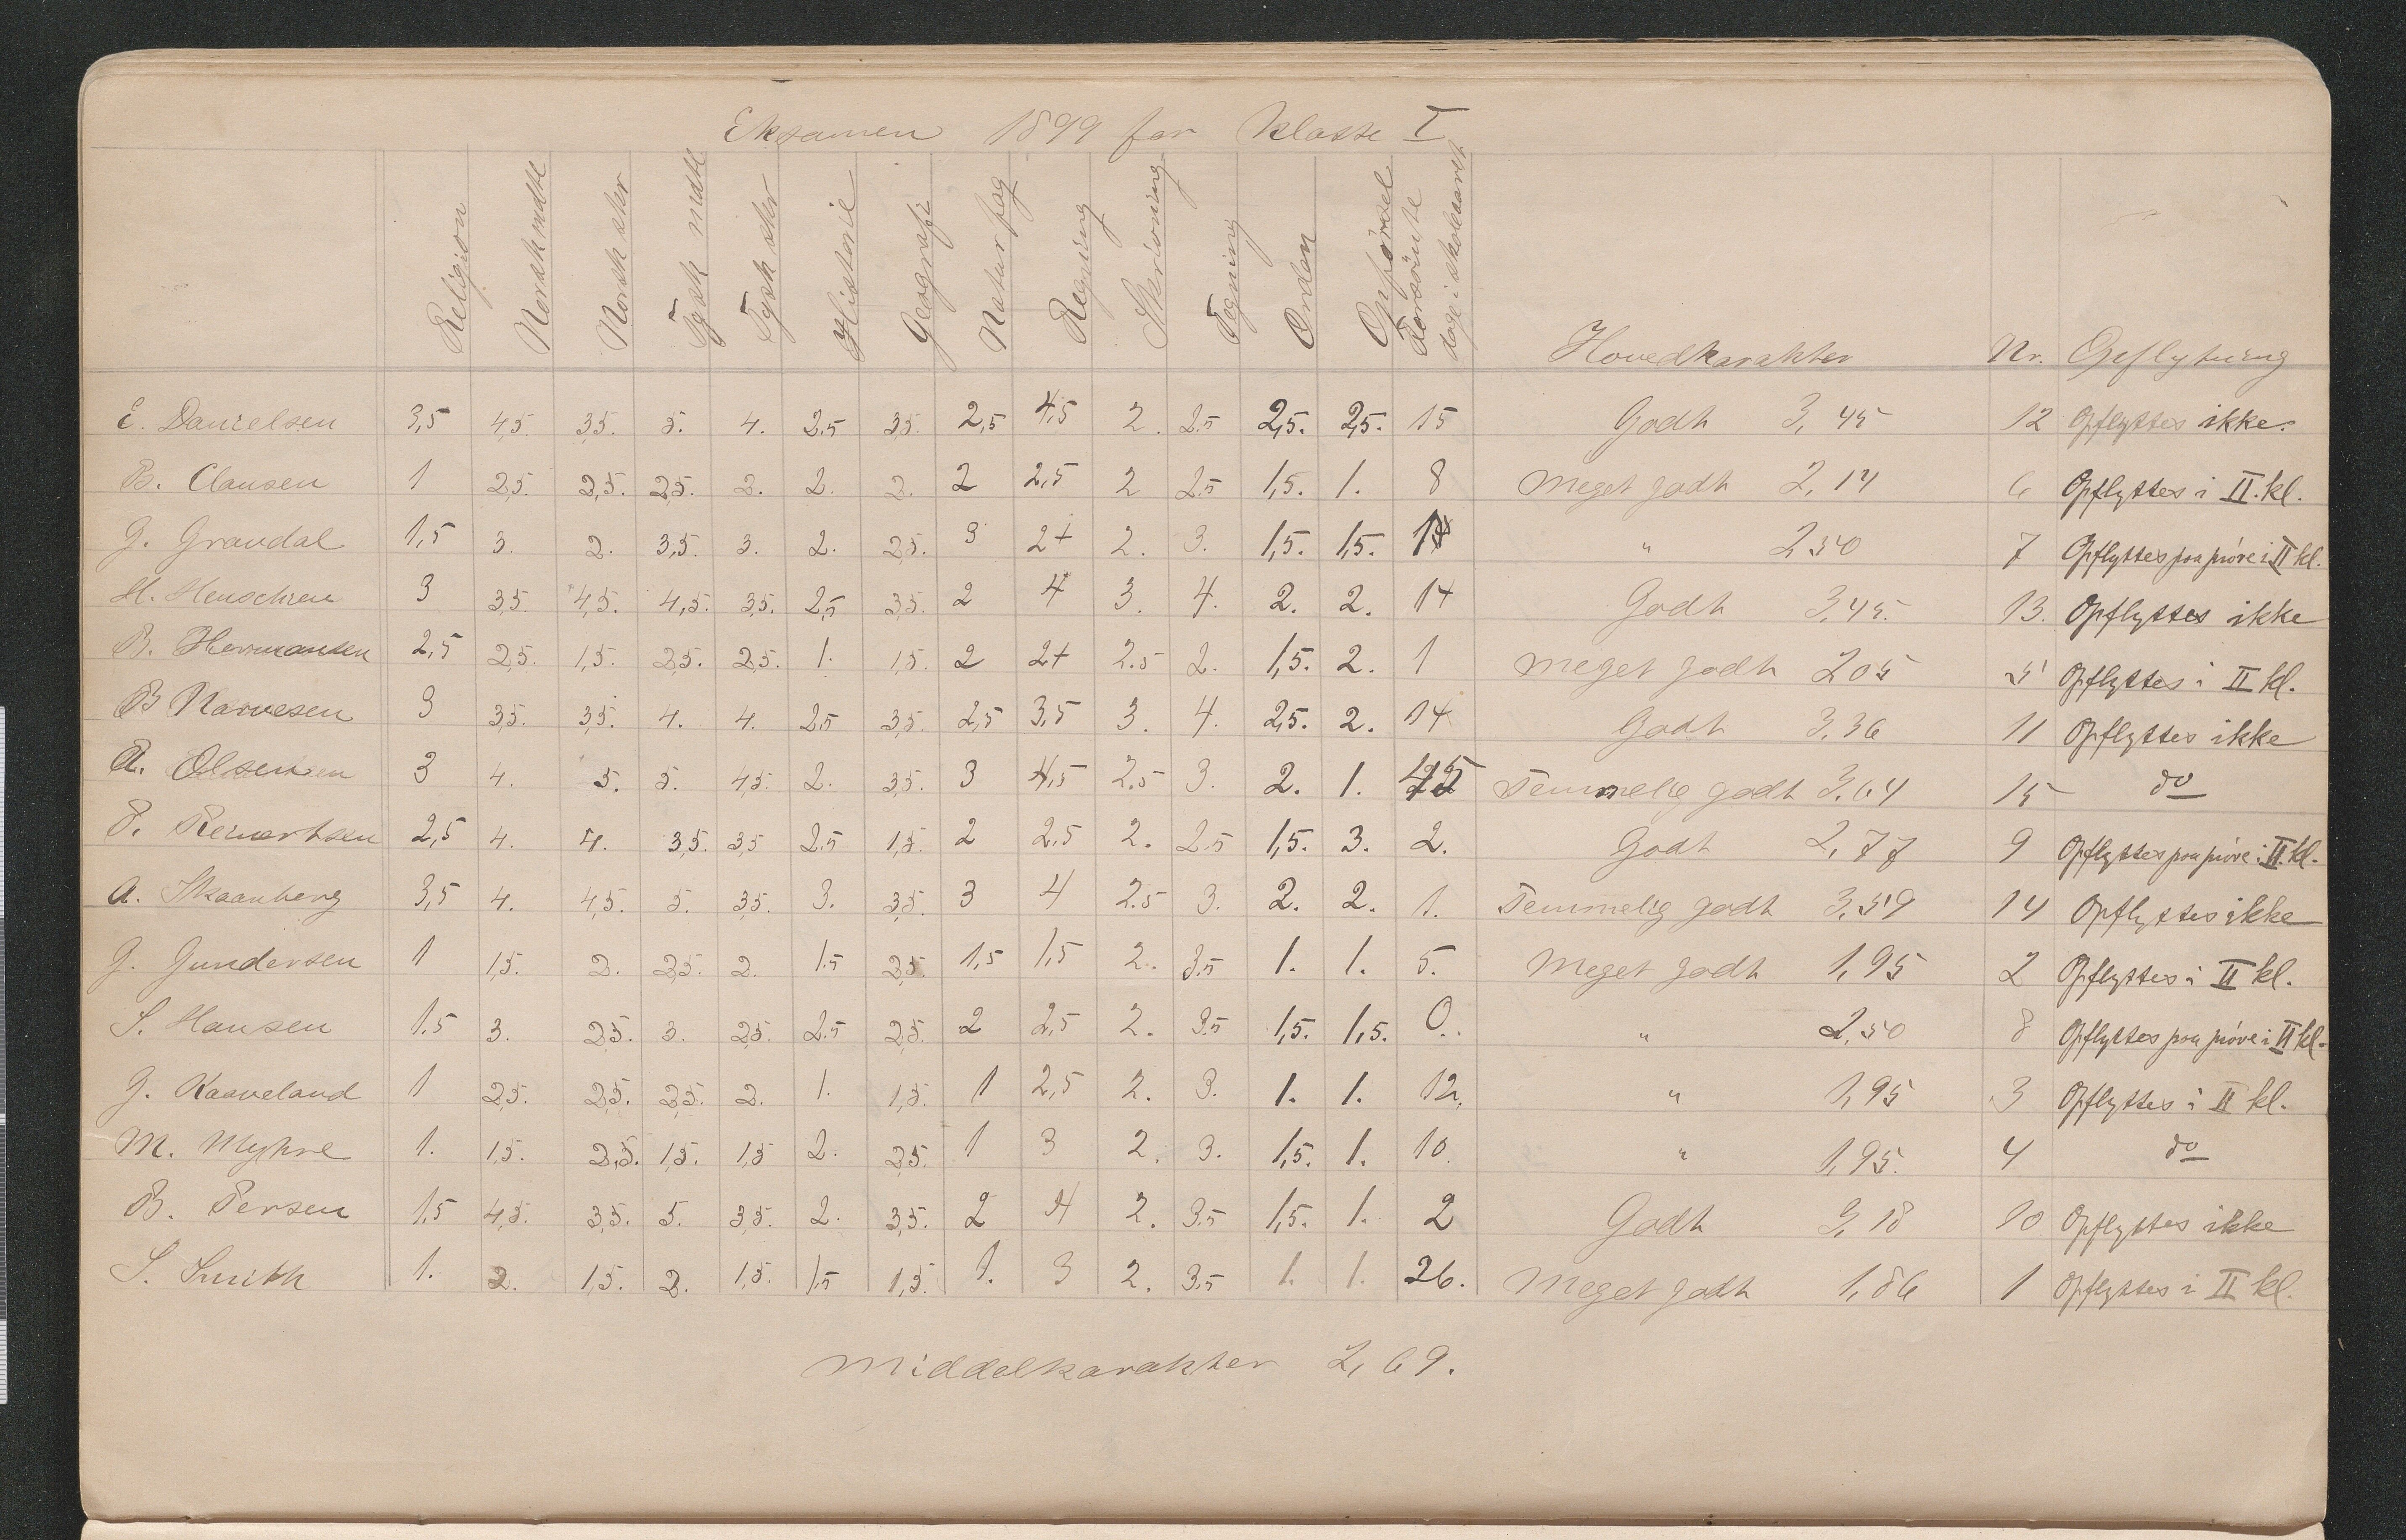 Eksamen 1899 for Klasse I
Religion Norsk mdtl Norsk skr Tysk mdtl Tysk skr Historie Geografi Naturfag Regning Skrivning Tegning Orden Opførsel Forsømte dage i skoleaaret Hovedkarakter Nr. Opflytning
E. Danielsen 3,5 4,5. 3,5. 5. 4. 2.5 3,5. 2,5 4,5 2. 2.5 2,5. 2,5. 15 Godt 3,45 12 Opflyttes ikke.
B. Clausen 1 2,5. 2,5. 2,5. 2. 2. 2. 2 2,5 2 2.5 1,5. 1. 8 Meget godt 2,14 6 Opflyttes i II. kl.
G. Grandal 1,5 3. 2. 3,5. 3. 2. 2,5. 3 2+ 2. 3. 1,5. 1,5. " 2,50 7 Opflyttes paa prøve i II kl.
H. 3 3,5. 4,5. 4,5. 3,5. 2,5 3,5. 2 4 3. 4. 2. 2. 14 Godt 3,45. 13. Opflyttes ikke
B. Hermansen 2,5 2,5. 1,5. 2,5. 2,5. 1. 1,5. 2 2+ 2.5 2. 1,5. 2. 1 Meget godt 2,05 5 Opflyttes i II kl.
B Narvesen 3 3,5. 3,5. 4. 4. 2.5 3,5. 2,5 3,5 3. 4. 2,5. 2. 14 Godt 3,36 11 Opflyttes ikke
A. Olsen 3 4. 5. 5. 4,5. 2. 3,5. 3 4,5 2.5 3. 2. 1. Temmelig godt 3,64 15 do
Reinertsen 2,5 4. 4. 3,5. 3,5 2.5 1,5. 2 2,5 2. 2.5 1,5. 3. 2. Godt 2,77 9 Opflyttes paa prøve i II. kl.
A. Skaanberg 3,5 4. 4,5. 5. 3,5. 3. 3,5. 3 4 2.5 3. 2. 2. 1. Temmelig godt 3,59 14 Opflyttes ikke
G. Gundersen 1 1,5. 2. 2,5. 2. 1.5 2,5. 1,5 1,5 2. 3.5 1. 1. 5. Meget godt 1,95 2 Opflyttes i II kl.
S. Hansen 1.5 3. 2,5. 3. 2,5. 2.5 2,5. 2 2,5 2. 3.5 1,5. 1,5. 0. " 2,50 8 Opflyttes paa prøve i II kl.
G. Kaaveland 1 2,5. 2,5. 2,5. 2. 1. 1,5. 1 2,5 2. 3. 1. 1. 12. " 1,95 3 Opflyttes i II kl.
M. Myhre 1. 1,5. 2,5. 1,5. 1,5 2. 2,5. 1 3 2. 3. 1,5. 1. 10. " 1,95. 4 do
B. Persen 1,5 4,5. 3,5. 5. 3,5. 2. 3,5. 2 4 2. 3.5 1,5. 1. 2 Godt 3,18 10 Opflyttes ikke
S. Smith 1. 2. 1,5. 2. 1,5. 1.5 1,5. 1. 3 2. 3.5 1. 1. 26. Meget godt 1,86 1 Opflyttes i II kl.
Middelkarakter 2,69.